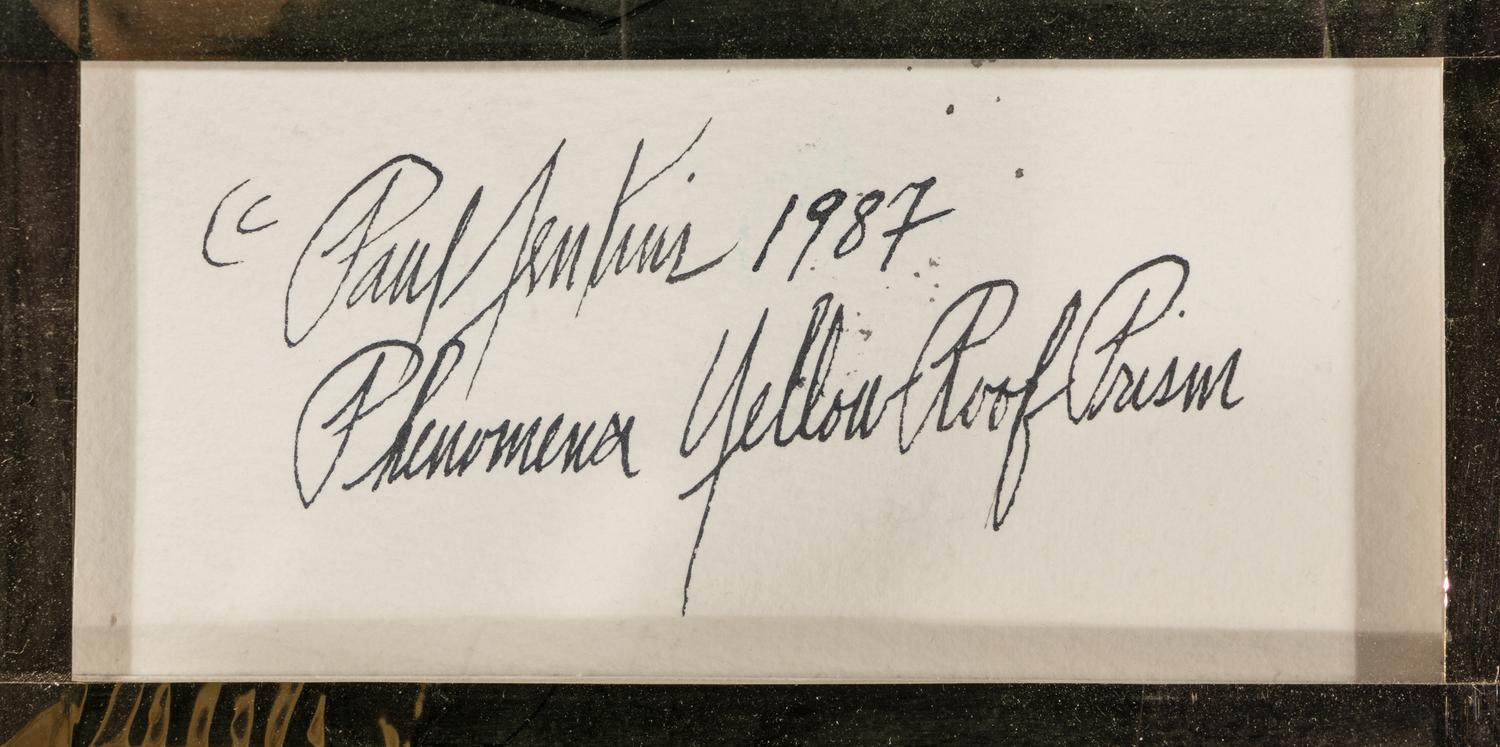 © Paul Jenkins 1987
Phenomena Yellow Roof Prism